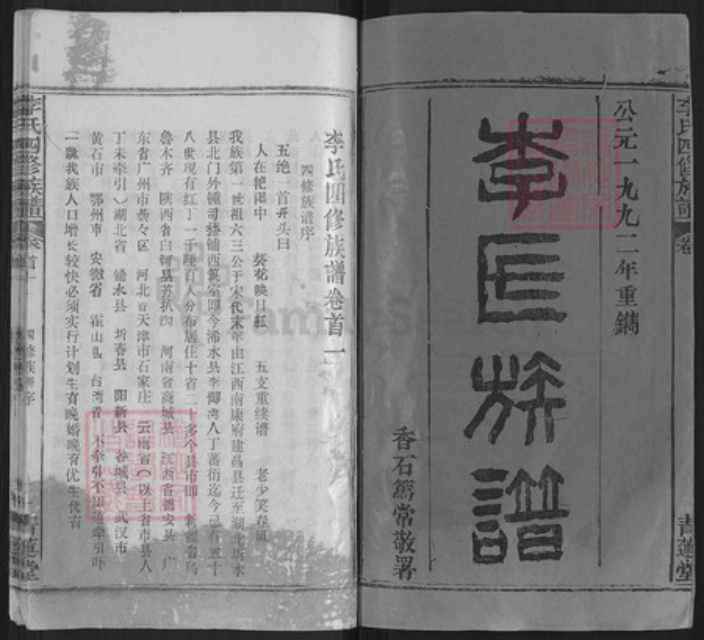 公元一九九二年重鐫
李氏族譜
香石篤常敬署
李氏四修族譜 卷
青蓮堂
李氏四修族譜卷首一
四修族谱序
五绝一首开头曰
人在艳阳中 葵花映日红 五支重续谱 老少笑春风
我族第一世祖六三公于宋代末年由江西南康府建昌县迁至湖北圻水
县北门外锺司 铺西 室即今浠水县李御湾人丁蕃衍迄今已有 十
八世现有红丁一千 百人分布居住十省二十多个县市即 新疆省乌
鲁木齐 陕西省白河县 扒沟 河南省商城县 江西省德安县 广
东省广州市 区 河北省天津市石家庄 云南省（以上省市县人
丁未牵引）湖北省 浠水县 圻春县 阳新县 谷城县 武汉市
黄石市 鄂州市 安徽省 霍山县 台湾省 不牵引不知道牵引吓
一跳我族人口增长较快必须实行计划生育晚婚晚育优生优育
李氏四修族譜 卷首一
四修族谱序
青蓮堂